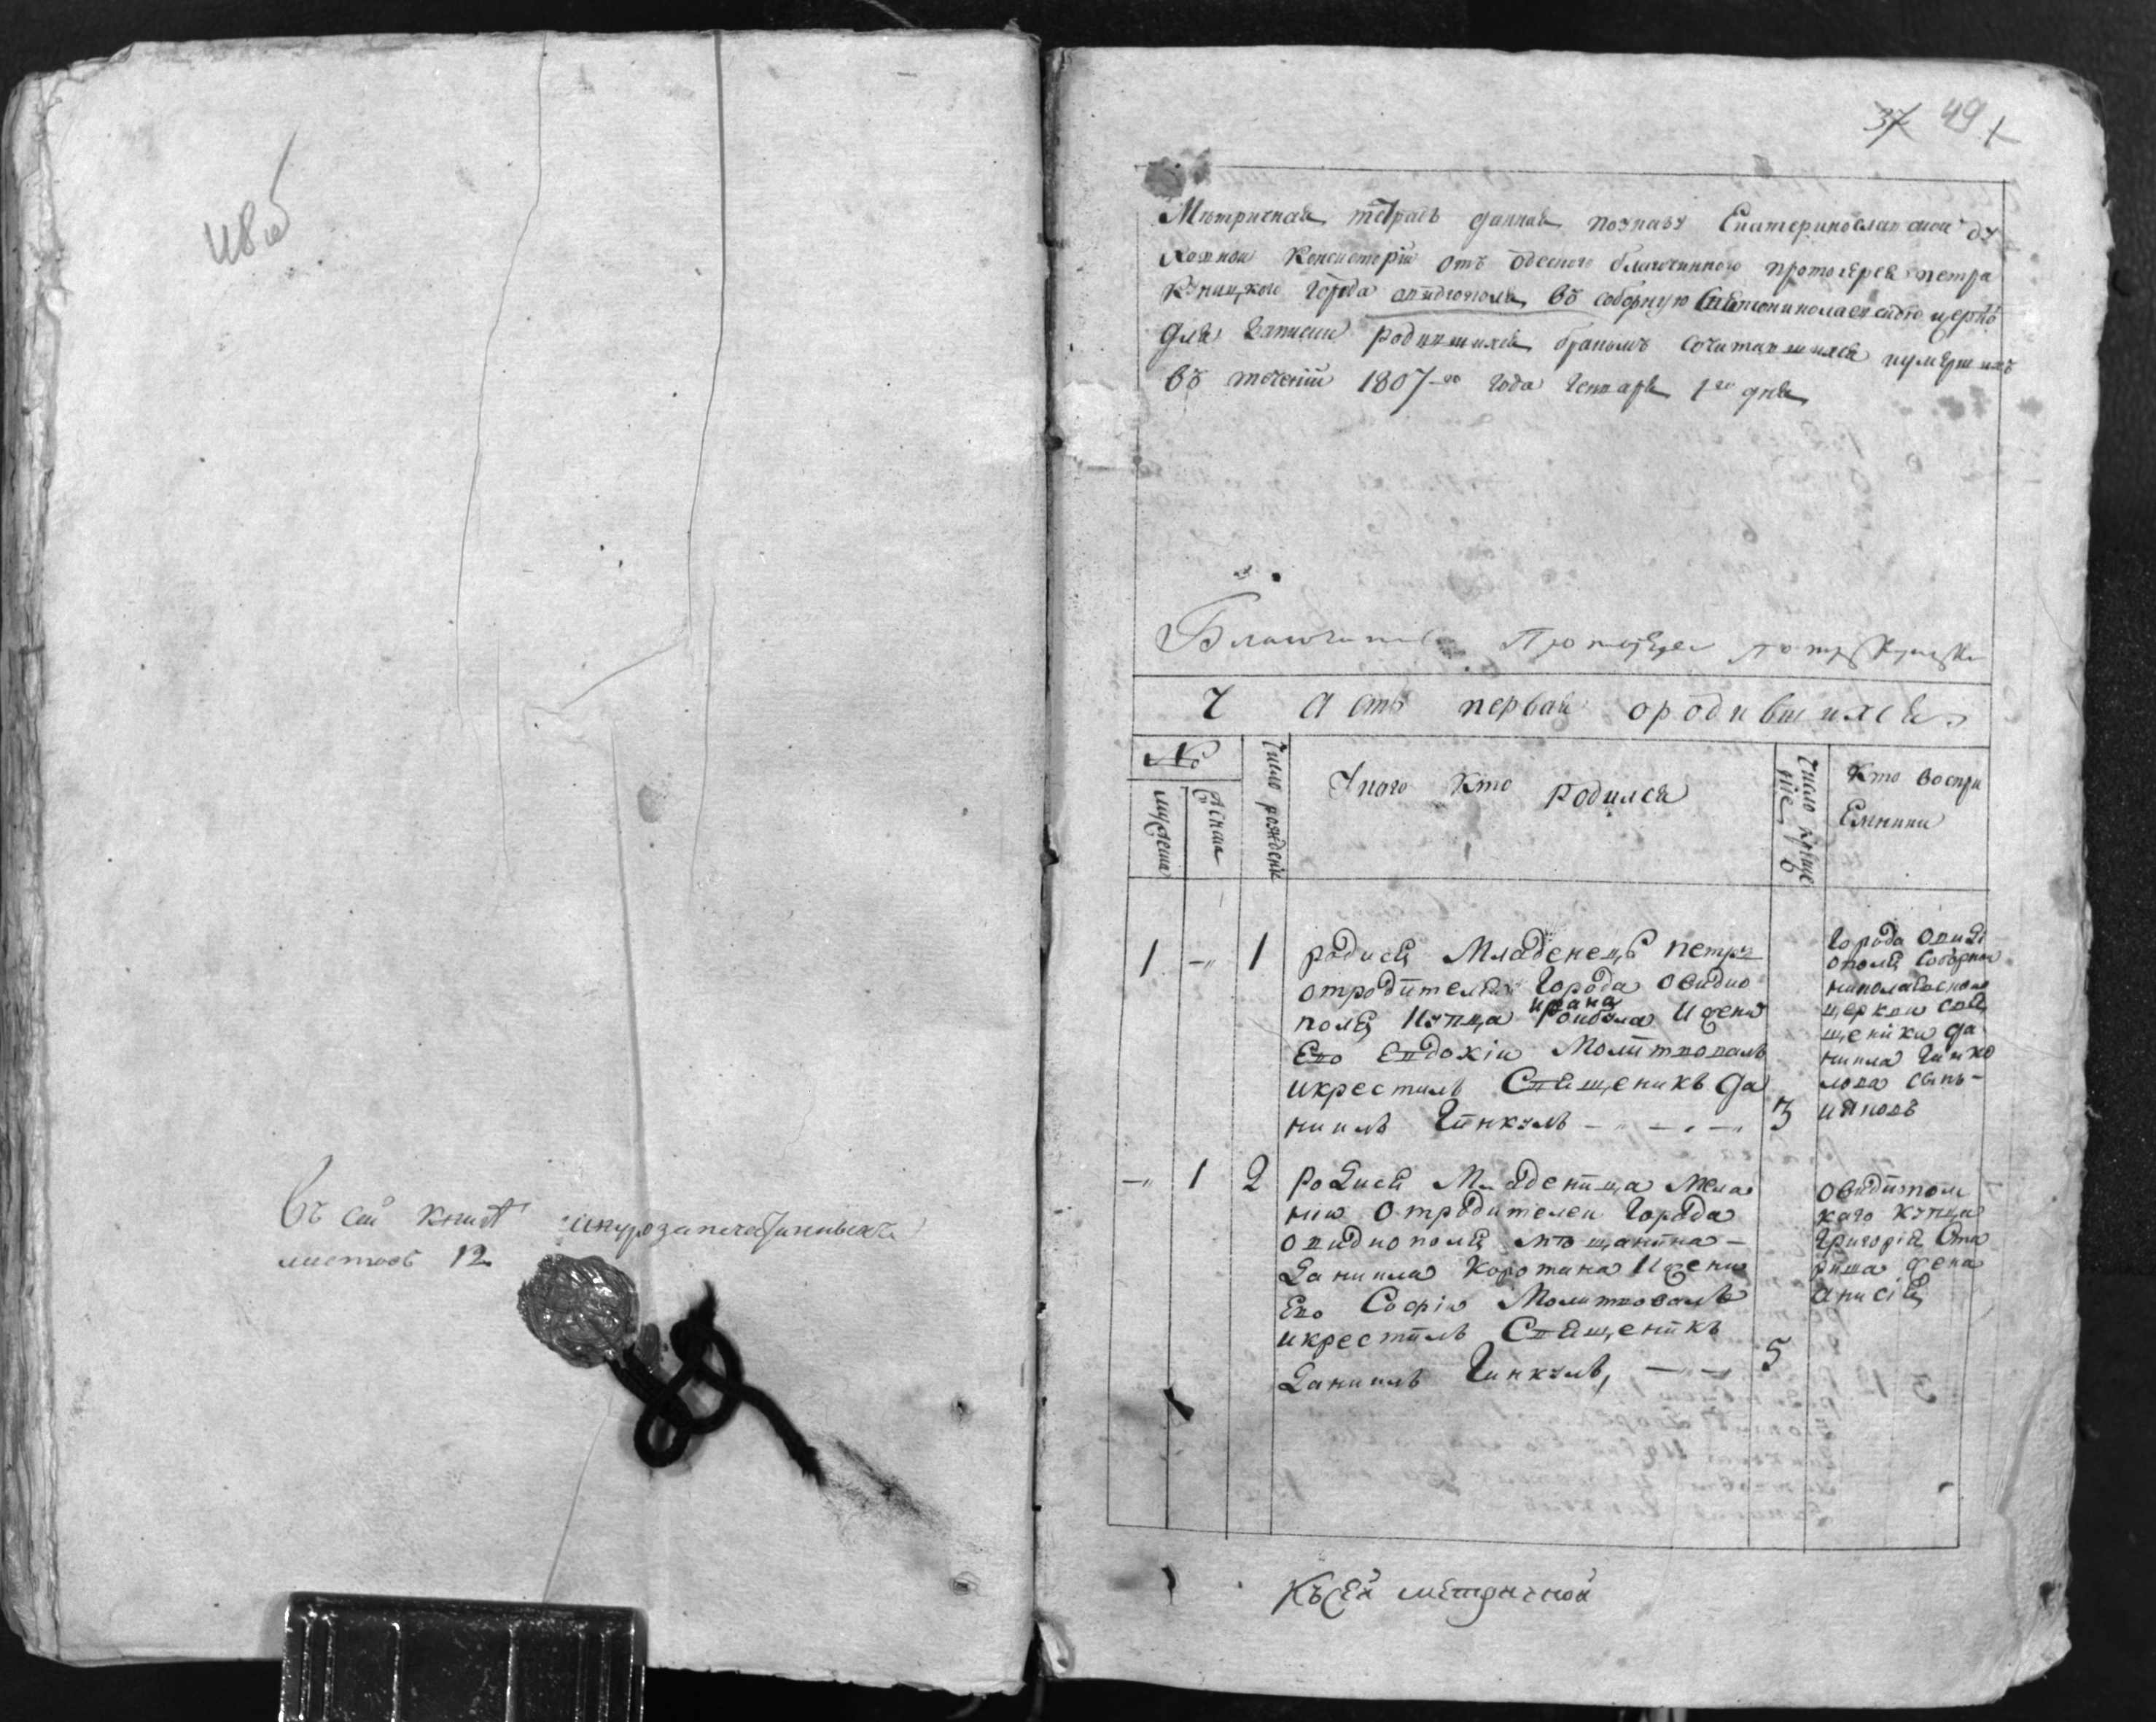 48 об
Въ сей книгѣ шнурозапечатанныхъ
листовъ 12
37 49 1
Метричная тетрадь данная поуказу Екатеринославской ду
ховной Консисторіи отъ одескаго благочиннаго протоіерея петра
Куницкаго города овидіополя въ соборную Святониколаевскую церковь
для записки родившихся бракомъ сочитавшихся иумершихъ
въ теченіи 1807-го года генваря 1го дня
Благочинный Протоіерей петръ Куницкій
Часть первая ородившихся
№
мужеска
женска
число рожденія
Уного кто родился
число креще
нія
Кто воспри
Емники
1 -„ 1 родися Младенецъ петръ
отродителей города овидио
ивана
поля купца жены
Его Евдокіи Молитвовалъ
икрестилъ Священикъ да
ниилъ Гинкулъ 3
города овиди
ополя соборной
николаевской
церкви свя
щеника да
ниила Гинко
лова сынъ
-„ 1 2 Родися Младеница Мела
ния отродителей города
овидиополя мѣщанина
Даниила Коротина Ижены
Его Софіи Молитвовалъ
икрестилъ Священикъ
Даниилъ Гинкулъ, 5
овидиопол
каго купца
Григорія Ста
жена
анисія
Къ сей метричной